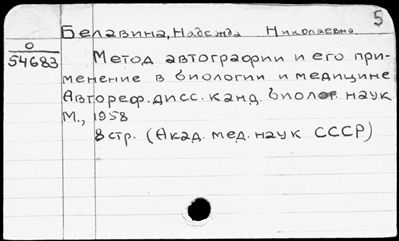 5
Белавина, Надежда Николаевна
0
54683
Метод автографии и его при-
менение в биологии и медицине
Автореф. дисс. канд. биолог. наук
М., 1958
8 стр. (Акад. мед. наук СССР)